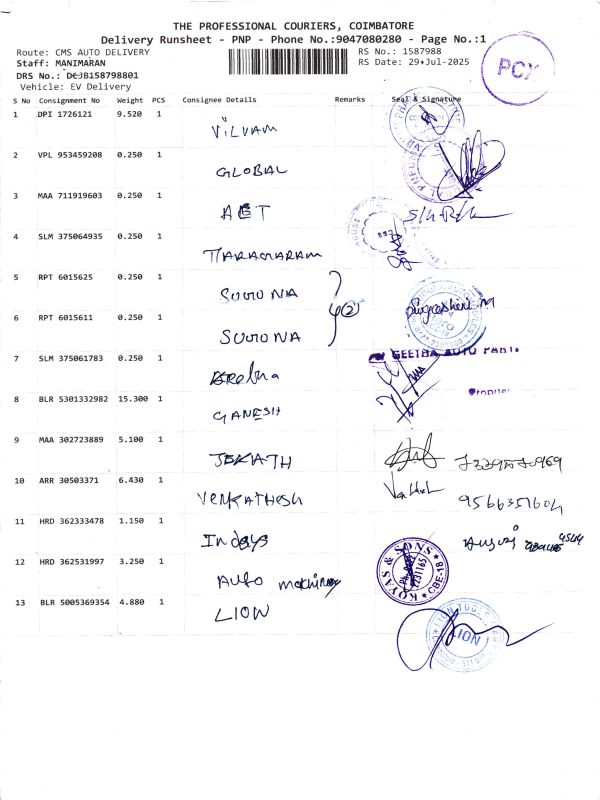 THE PROFESSIONAL COURIERS, COIMBATORE
Delivery Runsheet - PNP - Phone No.:9047080280 - Page No.:1
Route: CMS AUTO DELIVERY
RS No.: 1587988
Staff: MANIMARAN
RS Date: 29-Jul-2025
DRS No.: DCJB158798801
Vehicle: EV Delivery
PCX
S No Consignment No Weight PCS Consignee Details Remarks Seal & Signature
1 DPI 1726121 9.520 1
VILVAM
2 VPL 953459208 0.250 1
GLOBAL
3 MAA 711919603 0.250 1
AET
4 SLM 375064935 0.250 1
5 RPT 6015625 0.250 1
SUGUNA
6 RPT 6015611 0.250 1
SUGUNA
7 SLM 375061783 0.250 1
GEETHA AUTO PARTS
8 BLR 5301332982 15.300 1
GANESH
9 MAA 302723889 5.100 1
JEKATH
10 ARR 30503371 6.430 1
VENKATHESH
9566351604
11 HRD 362333478 1.150 1
12 HRD 362531997 3.250 1
Auto
KOVAS & SONS
CBE-18
13 BLR 5005369354 4.880 1
LION
LION